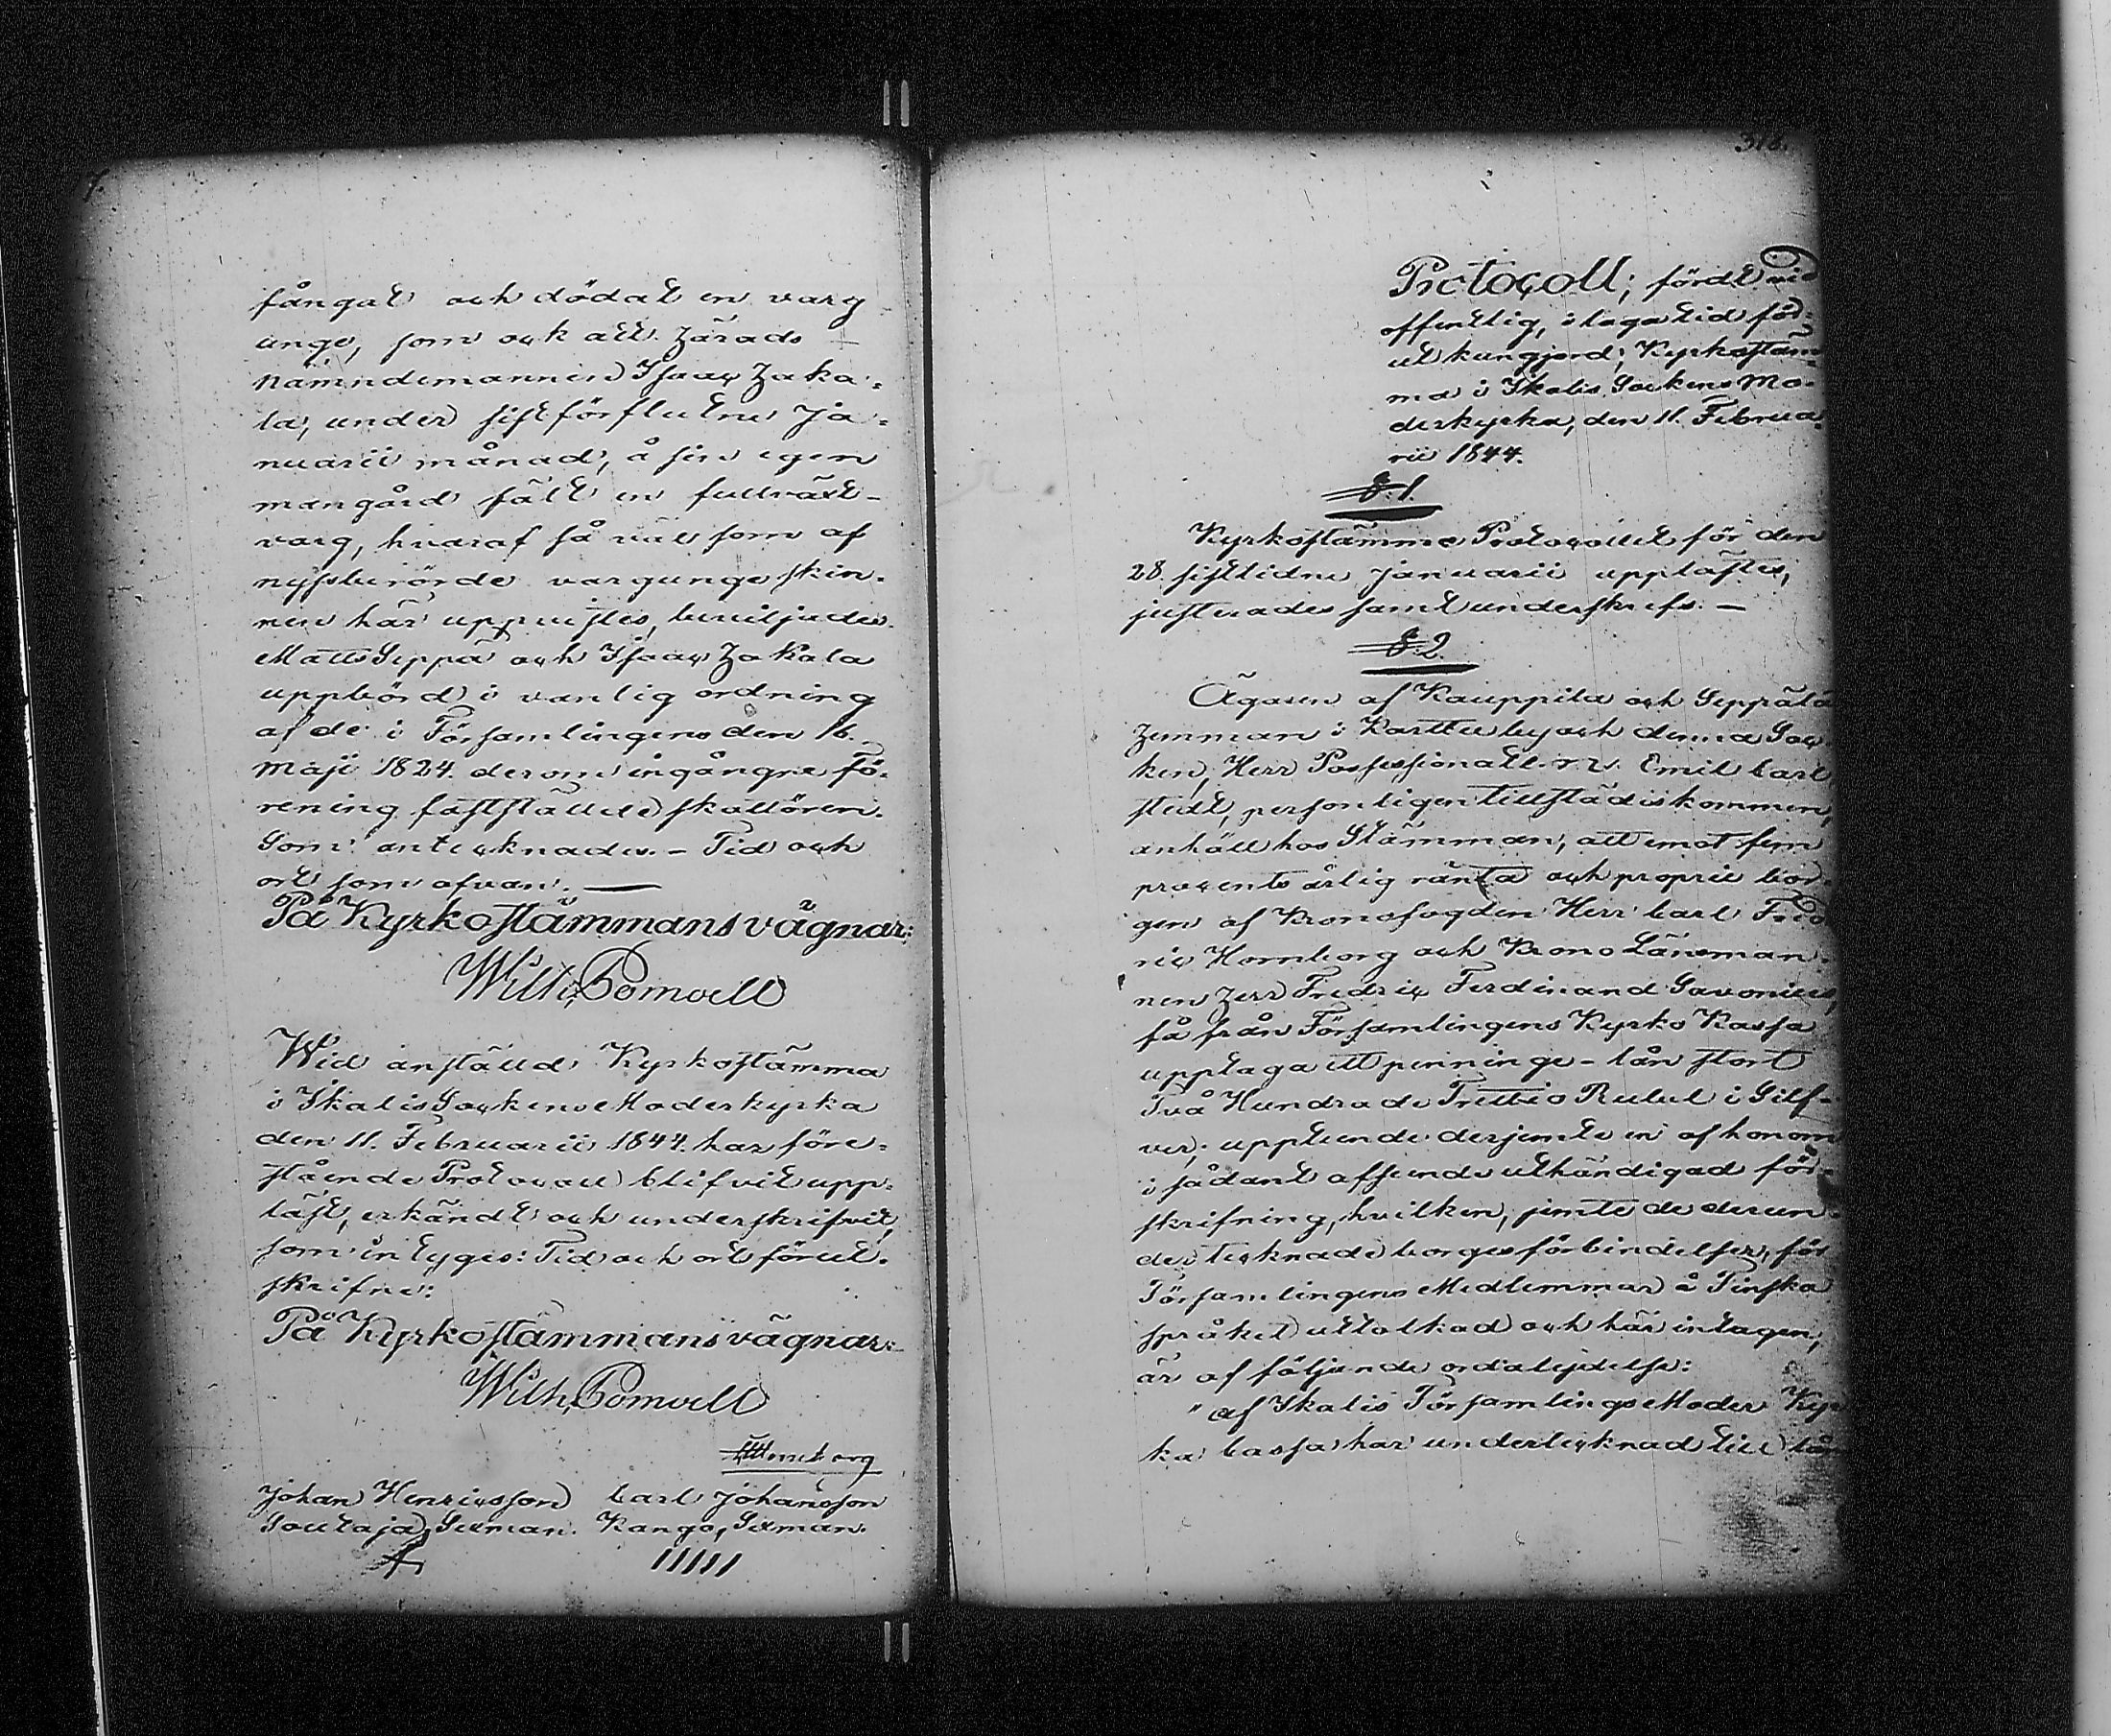 fångat och dödat en varg
unge, som ock att Härads
nämndemannen Isaac Haka-
la, under sistförflutne Ja-
nuarii månad, å sin egen
mangård fällt en fullväxt
varg, hvaraf så väl som af
nyssberörde vargunge skin-
nen här uppvistes, beviljades
Matts Seppä och Isaac Hakala
uppbörd i vanlig ordning
af de i Församlingens den 16.
Maji 1824. derom ingångne fö-
rening fastställde skallören.
Som antecknades. - Tid och
ort som ofvan. —
På Kyrkostämmans vägnar:
Wilh. Pomoell
Wid anställd Kyrkostämma
i Ikalis Sockens Moderkyrka
den 11. Februarii 1844. har före-
stående Protocoll blifvit upp-
läst, erkändt och underskrifvit,
som intygas: Tid och ort förut-
skrifne:
På Kyrkostämmans vägnar:
Wilh. Pomoell
Johan Henricsson Carl Johansson
Sexman. Kango, Sexman.
11111
318.
Protocoll; fördt vid
offentlig, i laga tid för-
ut kungjord, Kyrkostäm-
ma i Ikalis Sockens Mo-
derkyrka, den 11. Februa-
rii 1844.
§. 1.
Kyrkostämmo Protocollet för den
28. sistlidne Januarii upplästes,
justerades samt underskrefs. —
§. 2.
Ägaren af Kauppila och Seppälä
Hemman i Karttu by och denna Soc-
ken, Herr Possessionaten Emil Carl
stedt, personligen tillstädeskommen,
anhöll hos Stämman, att emot fem
procents årlig ränta och proprie bor-
gen af Kronofogden Herr Carl Fred
ric Hornborg och Krono Länsman-
nen Herr Fredric Ferdinand Savonius,
få från Församlingens Kyrko Kassa
upptaga ett penninge-lån stort
Två Hundrade Trettio Rubel i Silf-
ver; uppteende derjemte en af honom
i sådant afseende uthändigad för-
skrifning, hvilken, jemte de derun-
der tecknade borgesförbindelser, för
Församlingens Medlemmar å Finska
språket uttolkad och här intagen,
är af följande ordalydelse:
"Af Ikalis Församlings Moder Kyr
ka Cassa har undertecknad till lån